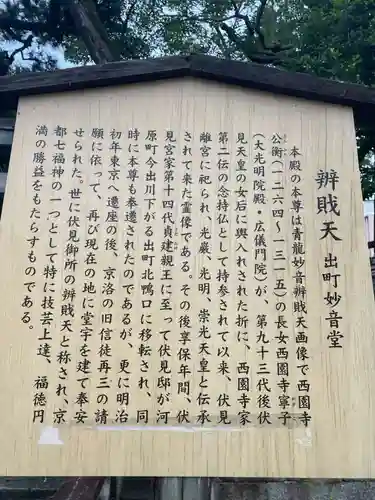 辨賊天 出町妙音堂
本殿の本尊は青龍妙音辨賊天画像で西園寺
公衡(一二六四〜一三一五)の長女西園寺寧子
(大光明院殿・広儀門院)が、第九十三代後伏
見天皇の女后に輿入れされた折に、西園寺家
第二伝の念持仏として持参されて以来、伏見
離宮に祀られ、光厳、光明、崇光天皇と伝承
されて来た霊像である。その後享保年間、伏
見宮家第十四代貞建親王に至って伏見邸が河
原町今出川下がる出町北鴨口に移転され、同
時に本尊も奉遷されたのであるが、更に明治
初年東京へ遷座の後、京洛の旧信徒再三の請
願に依って、再び現在の地に堂宇を建て奉安
せられた。世に伏見御所の辨賊天と称され、京
都七福神の一つとして特に技芸上達、福徳円
満の勝益をもたらすものである。